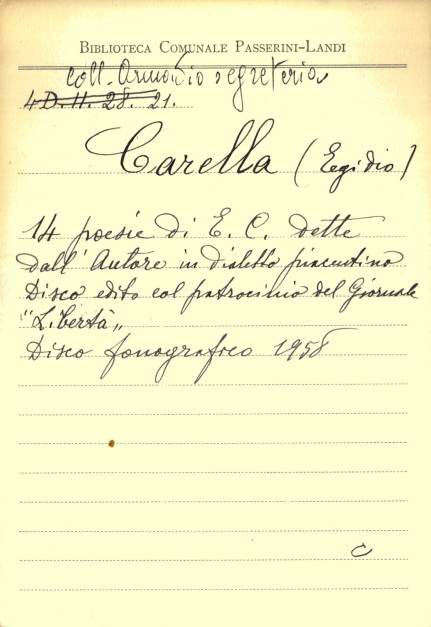 BIBLIOTECA COMUNALE PASSERINI-LANDI
coll. Armadio segreteria
4D. H. 28. 21.
Carella (Egidio)
14 poesie di E. C. dette
dall'Autore in dialetto piacentino
Disco edito col patrocinio del Giornale
"Libertà„
Disco fonografico 1958
C